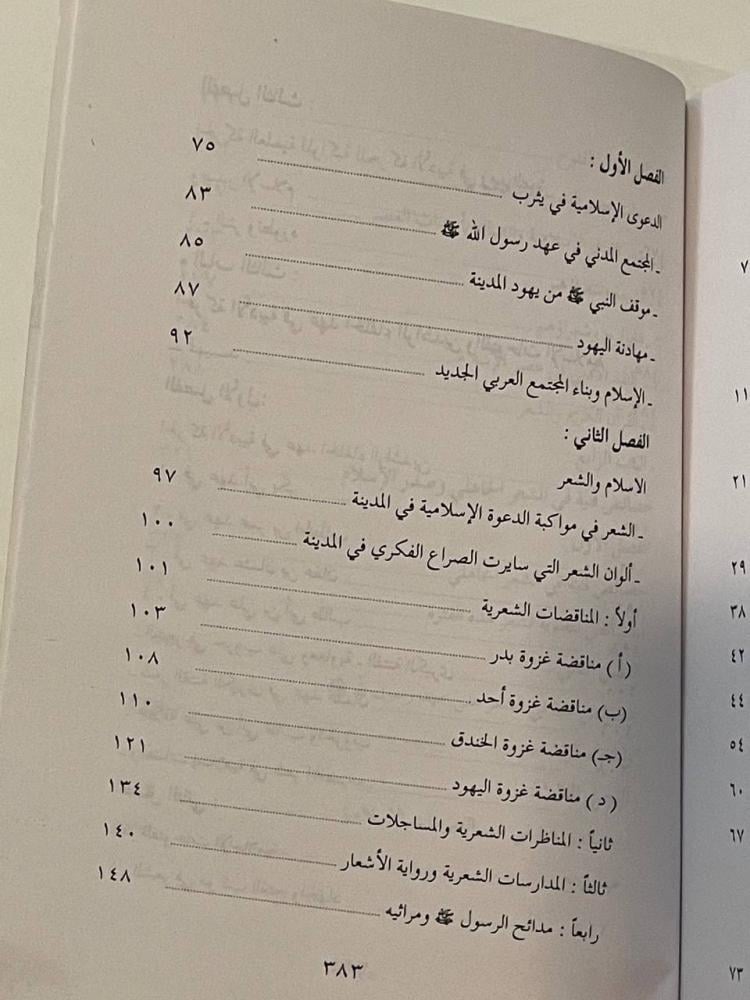 ٧
١١
٢١
٢٩
٣٨
٤٢
٤٤
٥٤
٦٠
٦٧
٧٣
الفصل الأول :
الدعوى الإسلامية في يثرب ........ ٧٥
ـ المجتمع المدني في عهد رسول الله ﷺ ........ ٨٣
ـ موقف النبي ﷺ من يهود المدينة ........ ٨٥
ـ مهادنة اليهود ........ ٨٧
ـ الإسلام وبناء المجتمع العربي الجديد ........ ٩٢
الفصل الثاني :
الاسلام والشعر
ـ الشعر في مواكبة الدعوة الإسلامية في المدينة ........ ٩٧
ـ ألوان الشعر التي سايرت الصراع الفكري في المدينة ........ ١٠٠
أولاً : المناقضات الشعرية ........ ١٠١
(أ) مناقضة غزوة بدر ........ ١٠٣
(ب) مناقضة غزوة أحد ........ ١٠٨
(جـ) مناقضة غزوة الخندق ........ ١١٠
(د) مناقضة غزوة اليهود ........ ١٢١
ثانياً : المناظرات الشعرية والمساجلات ........ ١٣٤
ثالثاً : المدارسات الشعرية ورواية الأشعار ........ ١٤٠
رابعاً : مدائح الرسول ﷺ ومراثيه ........ ١٤٨
٣٨٣